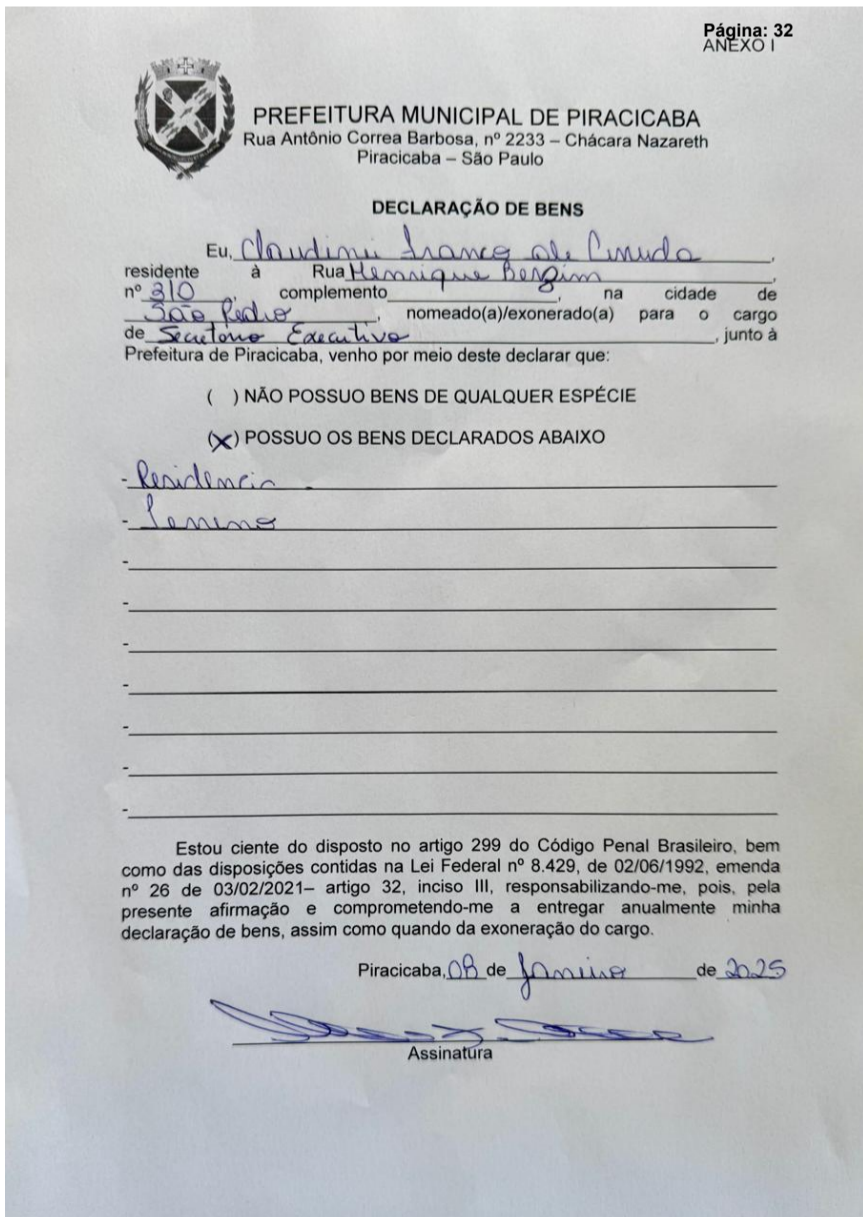 Página: 32
ANEXO I
PREFEITURA MUNICIPAL DE PIRACICABA
Rua Antônio Correa Barbosa, nº 2233 – Chácara Nazareth
Piracicaba – São Paulo
DECLARAÇÃO DE BENS
Eu, Claudinei Franco de,
residente à Rua Henrique Bergim,
nº 310, complemento, na cidade de
São Pedro, nomeado(a)/exonerado(a) para o cargo
de Secretario Executivo, junto à
Prefeitura de Piracicaba, venho por meio deste declarar que:
( ) NÃO POSSUO BENS DE QUALQUER ESPÉCIE
(X) POSSUO OS BENS DECLARADOS ABAIXO
- Residencia
- Terreno
-
-
-
-
-
-
-
Estou ciente do disposto no artigo 299 do Código Penal Brasileiro, bem
como das disposições contidas na Lei Federal nº 8.429, de 02/06/1992, emenda
nº 26 de 03/02/2021– artigo 32, inciso III, responsabilizando-me, pois, pela
presente afirmação e comprometendo-me a entregar anualmente minha
declaração de bens, assim como quando da exoneração do cargo.
Piracicaba, 08 de Janeiro de 2025
Assinatura